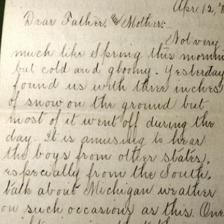 Apr 12 '8
Dear Father & Mother.
Not very
much like Spring this mornin
but cold and gloomy. Yesterday
found us with three inches
of snow on the ground but
most of it went off during the
day. It is amusing to hear
the boys from other states,
especially from the South,
talk about Michigan weather
on such occasions as this. One